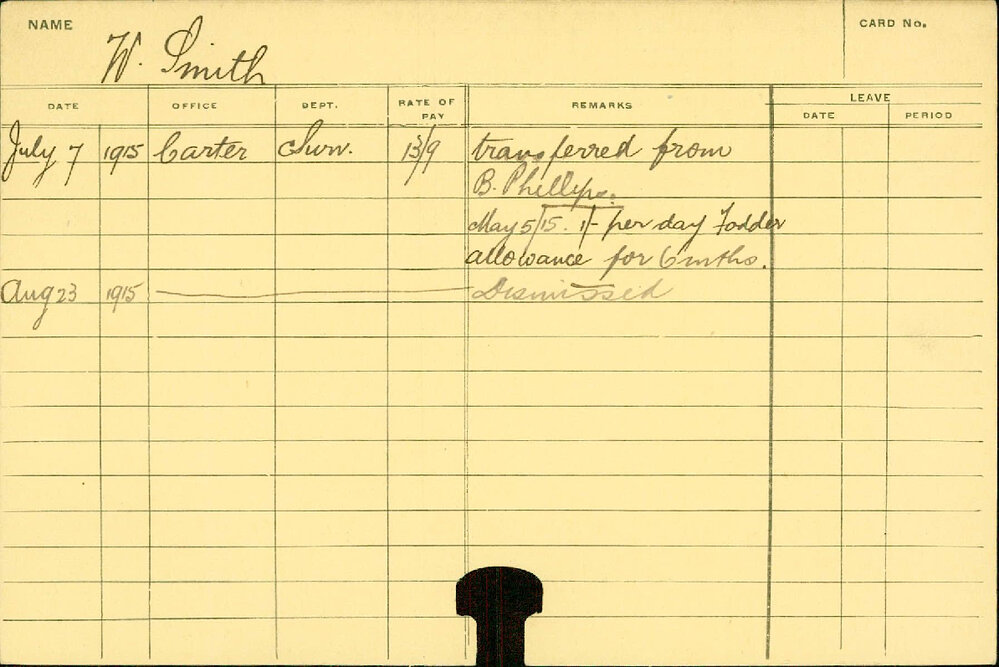 NAME W. Smith CARD No.
DATE OFFICE DEPT. RATE OF PAY REMARKS LEAVE
DATE PERIOD
July 7 1915 Carter 13/9 transferred from
B. Phillips.
May 5/15. 1/- per day Fodder
allowance for 6 mths.
Aug 23 1915 Dismissed